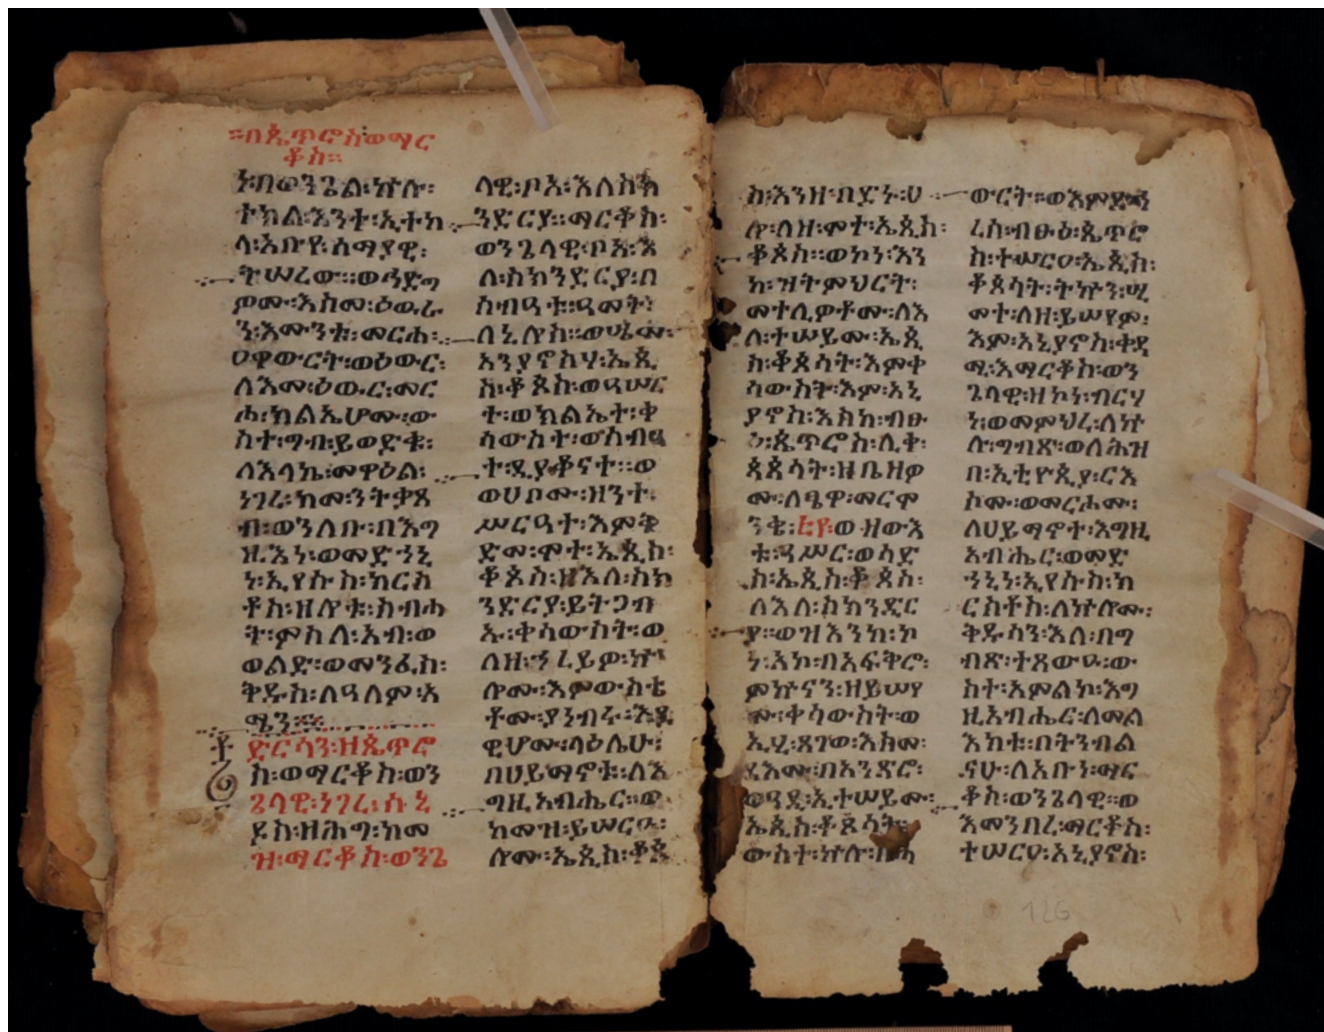 ።በጴጥሮስወማር
ቆስ።
ነ፡በወንጌል፡ኵሉ፡
ተክል፡እንተ፡ኢተከ
ላ፡አቡየ፡ሰማያዊ፡
ትሠረው።ወኀድግ
ዎሙ፡እስመ፡ዕዉራ
ን፡እሙንቱ፡መርሐ፡
ዐዋውርት፡ወዕውር፡
ለእመ፡ዕዉር፡መር
ሐ፡ክልኤሆሙ፡ው
ስተ፡ግብ፡ይወድቁ፡
ለእላኬ፡መዋዕል፡
ነገረ፡ከመ፡ንትቃጸ
ብ፡ወንለቡ፡በእግ
ዚእነ፡ወመድኀኒ
ነ፡ኢየሱስ፡ክርስ
ቶስ፡ዘሎቱ፡ስብሓ
ት፡ምስለ፡አብ፡ወ
ወልድ፡ወመንፈስ፡
ቅዱስ፡ለዓለም፡አ
ሜን።
ድርሳን፡ዘጴጥሮ
ስ፡ወማርቆስ፡ወን
ጌላዊ፡ነገረ፡ሱኒ
ዶስ፡ዘሕግ፡ከመ
ዝ፡ማርቆስ፡ወንጌ
ላዊ፡ቦአ፡እለስክ
ንድርያ።ማርቆስ፡
ወንጌላዊ፡ቦአ፡እ
ለ፡ስክንድርያ፡በ
ስብዓቱ፡ዓመት፡
ለኔሮስ፡ወሤሞ፡
አንያኖስሃ፡ኤጲ
ስ፡ቆጶስ፡ወዓሠር
ተ፡ወክልኤተ፡ቀ
ሳውስተ፡ወሰብዓ
ተ፡ዲያቆናተ።ወ
ወሀቦሙ፡ዘንተ፡
ሥርዓተ፡እምቅ
ድመ፡ሞተ፡ኤጲስ፡
ቆጶስ፡ዘእለ፡ስክ
ንድርያ፡ይትጋብ
ኡ፡ቀሳውስት፡ወ
ለዘ፡ኀረይዎ፡ኵ
ሎሙ፡እምውስቴ
ቶሙ፡ያነብሩ፡እደ
ዊሆሙ፡ላዕሌሁ፡
በሀይማኖቱ፡ለእ
ግዚአብሔር።ወ
ከመዝ፡ይሠርዑ፡
ሎሙ፡ኤጲስ፡ቆጶ
ስ፡እንዘ፡በደኑ፡ሀ
ሎ፡ለዘ፡ሞተ፡ኤጲስ፡
ቆጶስ።ወኮነ፡እን
ከ፡ዝትምህርት፡
መተሊዎቶሙ፡ለእ
ለ፡ተሠይሙ፡ኤጲ
ስ፡ቆጶሳት፡እምቀ
ሳውስት፡እም፡አኒ
ያኖስ፡እስከ፡ብፁ
ዕ፡ጴጥሮስ፡ሊቀ፡
ጳጳሳት፡ዘቤዘዎ
ሙ፡ለፄዋ፡መርዋ
ንቄ፡፲ወ፡ወዘውእ
ቱ፡ዓሥር፡ወሳድ
ስ፡ኤጲስ፡ቆጶስ፡
ለእለ፡ስክንዲር
ያ።ወዝእንከ፡ኮ
ነ፡አኮ፡በአፍቅሮ፡
ምኵናን፡ዘይሠየ
ሙ፡ቀሳውስት፡ወ
ኢሂ፡ጸገወ፡እስመ፡
ደእሙ፡በአንጻሮ፡
ወዓዲ፡ኢተሠይሙ፡
ኤጲስ፡ቆጶሳት፡
ውስተ፡ኵሉ፡በሓ
ውርት።ወእምድኅ
ረስ፡ብፁዕ፡ጴጥሮ
ስ፡ተሠርዐ፡ኤጲስ፡
ቆጶሳት፡ትኩን፡ሢ
መተ፡ለዘ፡ይሠየም፡
እም፡አኒያኖስ፡ቀዳ
ሚ፡እማርቆስ፡ወን
ጌላዊ፡ዘኮነ፡ብርሃ
ነ፡ወመምህረ፡ለኵ
ሉ፡ግብጽ፡ወለሕዝ
በ፡ኢትዮጲያ፡ርእ
ሶሙ፡ወመርሖሙ፡
ለሀይማኖተ፡እግዚ
አብሔር፡ወመድ
ኀኒነ፡ኢየሱስ፡ክ
ርስቶስ፡ለኵሎሙ፡
ቅዱሳን፡እለ፡በግ
ብጽ፡ተጸውዑ፡ው
ስተ፡አምልኮ፡እግ
ዚአብሔር፡ለመል
እክቱ፡በትንብል
ናሁ፡ለአቡነ፡ማር
ቆስ፡ወንጌላዊ።ወ
እመንበረ፡ማርቆስ፡
ተሠርዐ፡አኒያኖስ፡
126